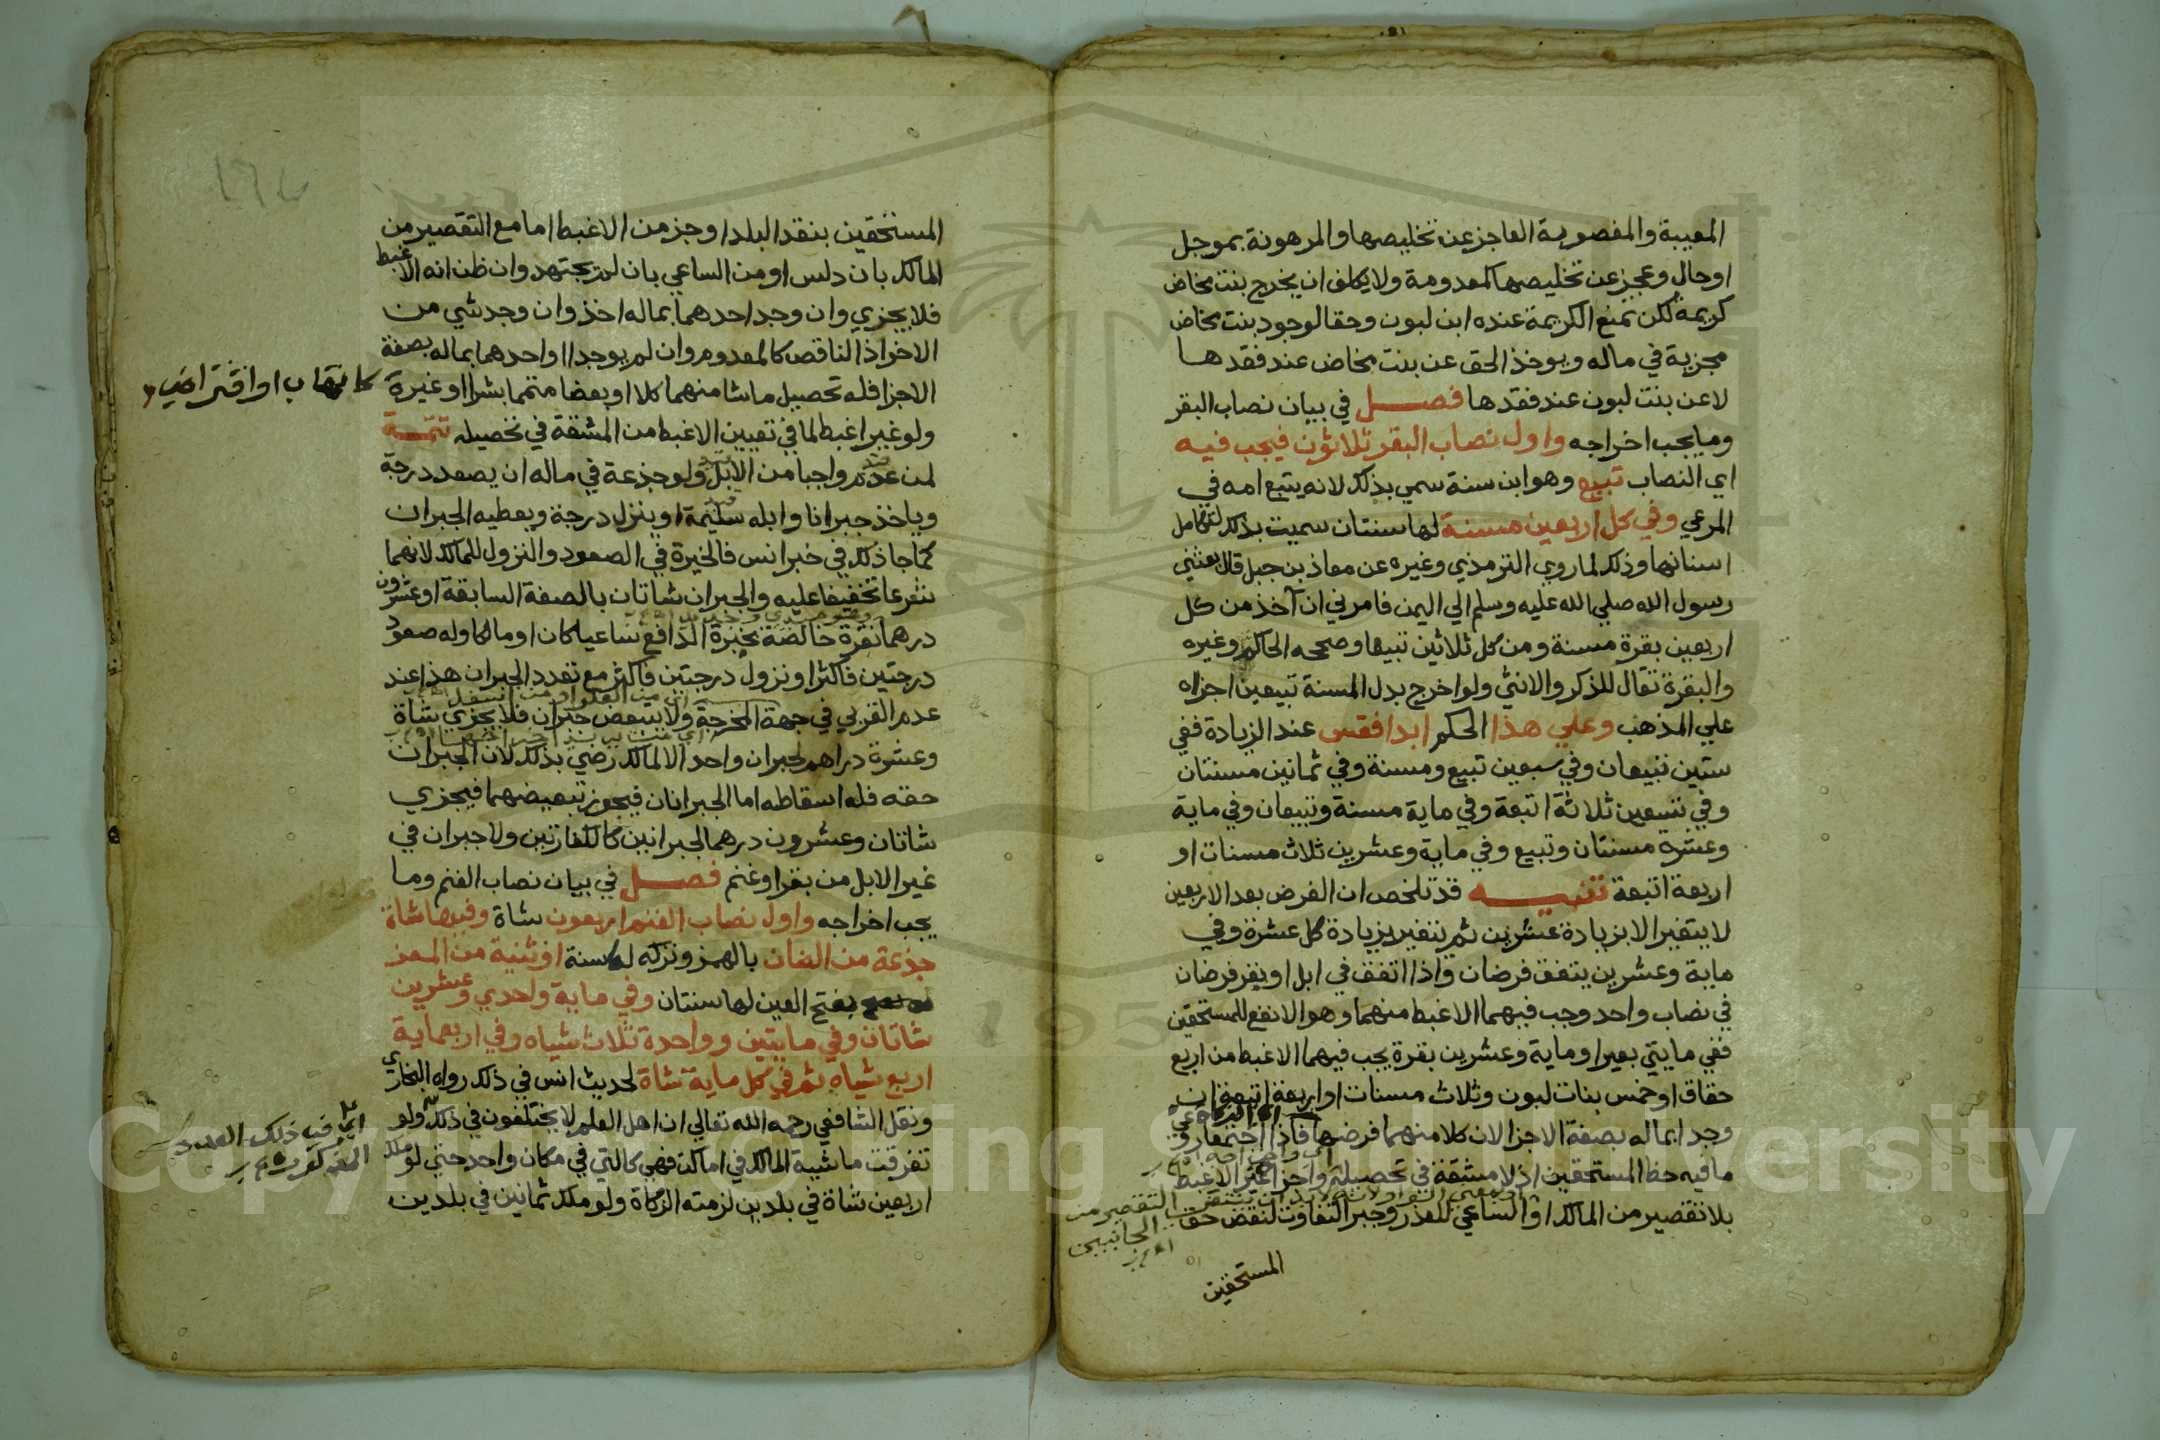 المعيبة والمغصوبة العاجز عن تخليصها والمرهونة بموجل
اوحال وعجز عن تخليصها كالمعدومة ولا يكلف ان يخرج بنت مخاض
كريمة لكن تمنع الكريمة عنده ابن لبون وحقا لوجود بنت مخاض
مجزية في ماله ويوخذ الحق عن بنت مخاض عند فقدها
لاعن بنت لبون عند فقدها فصل في بيان نصاب البقر
وما يجب اخراجه واول نصاب البقر ثلاثون فيجب فيه
اي النصاب تبيع وهو ابن سنة سمي بذلك لانه يتبع امه في
المرعي وفي كل اربعين مسنة لها سنتان سميت بذلك لتكامل
اسنانها وذلك لما روي الترمذي وغيره عن معاذ بن جبل قال بعثني
رسول الله صلي الله عليه وسلم الي اليمن فامرني ان آخذ من كل
اربعين بقرة مسنة ومن كل ثلاثين تبيعا وصححه الحاكم وغيره
والبقرة تقال للذكر والانثي ولو اخرج بدل المسنة تبيعين اجزاه
علي المذهب وعلي هذا الحكم ابدا فقس عند الزيادة ففي
ستين تبيعان وفي سبعين تبيع ومسنة وفي ثمانين مسنتان
وفي تسعين ثلاثة اتبعة وفي ماية مسنة وتبيعان وفي ماية
وعشرة مسنتان وتبيع وفي ماية وعشرين ثلاث مسنات او
اربعة اتبعة تنبيه قد تلخص ان الفرض بعد الاربعين
لا يتغير الا بزيادة عشرين ثم يتغير بزيادة كل عشرة وفي
ماية وعشرين يتفق فرضان واذا اتفق في ابل او بقر فرضان
في نصاب واحد وجب فيهما الاغبط منهما وهو الانفع للمستحقين
ففي مايتي بعير او ماية وعشرين بقرة يجب فيهما الاغبط من اربع
حقاق او خمس بنات لبون وثلاث مسنات او اربعة اتبعة ان
وجدا بماله بصفة الاجزا لان كلا منهما فرضها فاذا اجتمعا روعي
ما فيه حظ المستحقين اذ لا مشقة في تحصيله واجزا غير الاغبط
بلا تقصير من المالك او الساعي للعذر وجبر التفاوت لنقص حق
التقصير من
الجانبين
المستحقين
المستحقين بنقد البلد او جز من الاغبط اما مع التقصير من
المالك بان دلس او من الساعي بان لم يجتهد وان ظن انه الاغبط
فلا يجزي وان وجد احدهما بماله اخذ وان وجد شي من
الاخر اذ الناقص كالمعدوم وان لم يوجدا او احدهما بماله بصفة
الاجزا فله تحصيل ما شا منهما كلا او بعضا متمما بشرا او غيره
كاتهاب او اقتراض
ولو غير اغبط لما في تعيين الاغبط من المشقة في تحصيله تتمة
لمن عدم واجبا من الابل ولو جذعة في ماله ان يصعد درجة
وياخذ جبرانا وابله سليمة او ينزل درجة ويعطيه الجبران
كما جا ذلك في خبر انس فالخيرة في الصعود والنزول للمالك لانهما
شرعا تخفيفا عليه والجبران شاتان بالصفة السابقة او عشرون
درهما نقرة خالصة بخيرة الدافع ساعيا كان او مالكا وله صعود
درجتين فاكثر او نزول درجتين فاكثر مع تعدد الجبران هذا عند
عدم القربي في جهة المخرجة ولا يتبعض جبران فلا يجزي شاة
وعشرة دراهم لجبران واحد الا لمالك رضي بذلك لان الجبران
حقه فله اسقاطه اما الجبرانان فيجوز تبعيضهما فيجزي
شاتان وعشرون درهما لجبرانين كالكفارتين ولا جبران في
غير الابل من بقر او غنم فصل في بيان نصاب الغنم وما
يجب اخراجه واول نصاب الغنم اربعون شاة وفيها شاة
جذعة من الضان بالهمز وتركه لها سنة او ثنية من المعز
بفتح العين لها سنتان وفي ماية واحدي وعشرين
شاتان وفي مايتين وواحدة ثلاث شياه وفي اربعماية
اربع شياه ثم في كل ماية شاة لحديث انس في ذلك رواه البخاري
ونقل الشافعي رحمه الله تعالي ان اهل العلم لا يختلفون في ذلك ولو
اي في ذلك العدد
المذكور
تفرقت ماشية المالك في اماكن فهي كالتي في مكان واحد حتي لو ملك
اربعين شاة في بلدين لزمته الزكاة ولو ملك ثمانين في بلدين
Copyright © King Saud University